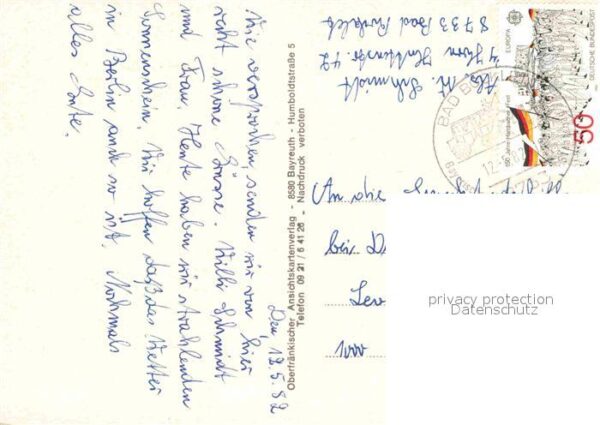 Den, 12.5.82
Wie versprochen senden wir von hier
recht schöne Grüsse. Willi Schmidt
und Frau. Heute haben wir strahlenden
Sonnenschein. Wir hoffen daß das Wetter
in Berlin auch so ist. Nochmals
alles Gute.
Oberfränkischer Ansichtskartenverlag - 8580 Bayreuth - Humboldtstraße 5
Telefon 09 21 / 6 41 26 - Nachdruck verboten
Abs. W. Schmidt
8733 Bad
EUROPA
150 Jahre Hambacher Fest
DEUTSCHE BUNDESPOST
50
BAD
12.5.
An
bei
1000
privacy protection
Datenschutz